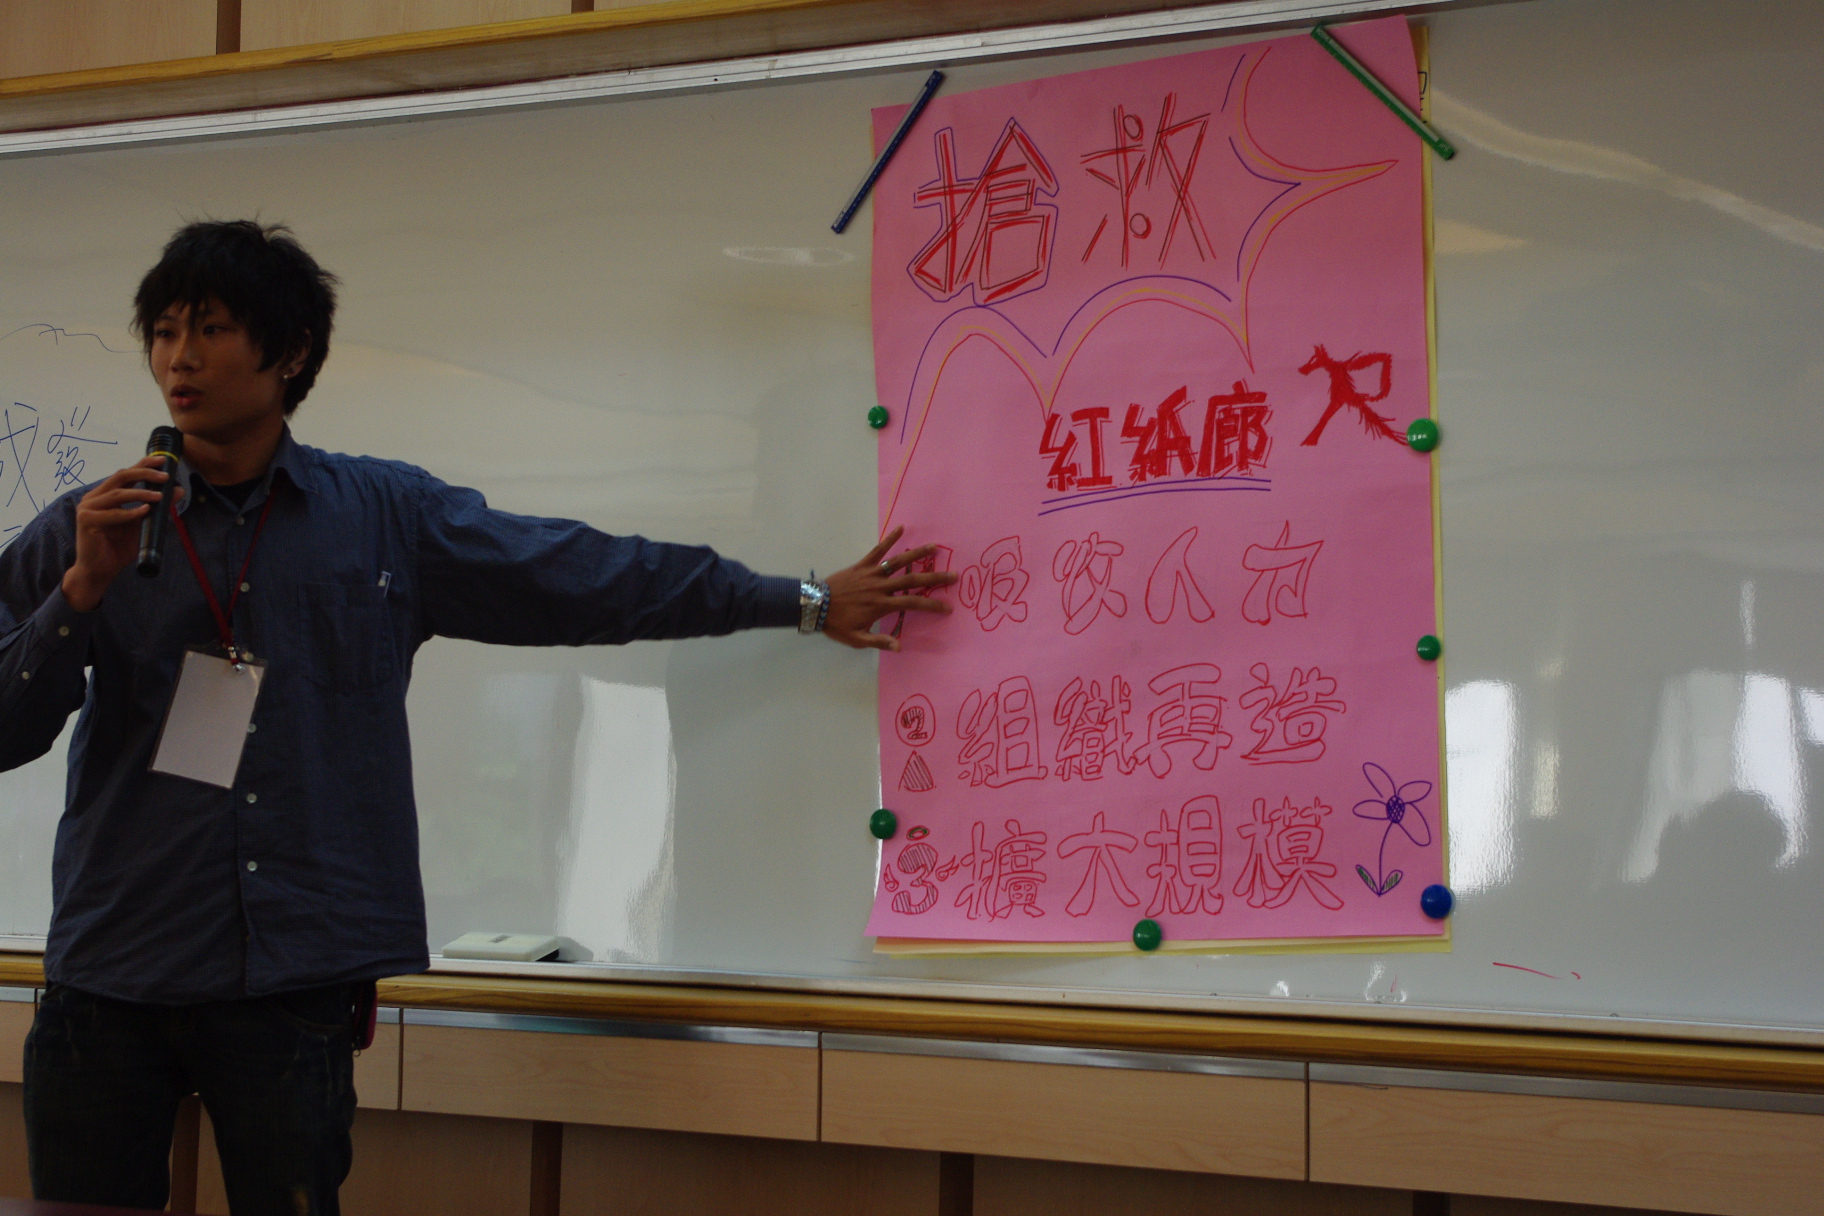 搶救
紅紙廊
吸收人力
2 組織再造
3 擴大規模
成發